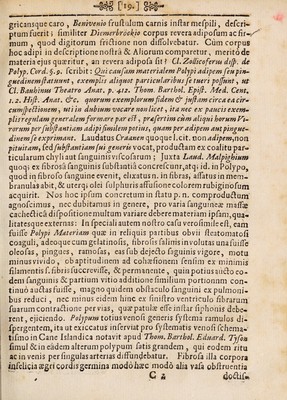 [19.]
gricansque caro, Benivenio frustulum carnis instar mespili, descri-
ptum fuerit; similiter Diemerbrockio corpus revera adiposum ac fir-
mum, quod digitorum frictione non dissolvebatur. Cùm corpus
hoc adipi in descriptione nostrâ & Aliorum comparetur, meritò de
materia ejus quæritur, an revera adiposa sit? Cl. Zollicoferus disp. de
Polyp. Cord. §. 9. scribit: Qui causam materialem Polypi adipem seu pin-
guedinem statuunt, exemplis aliquot particularibus se tueri possunt, ut
Cl. Bauhinus Theatro Anat. p. 411. Thom. Barthol. Epist. Med. Cent.
1. 2. Hist. Anat. &c. quorum exemplorum fidem & justam circa ea cir-
cumspectionem, uti in dubium vocare nolleet, ita nec ex paucis exem-
plis regulam generalem formare par est, præsertim cùm aliqui horum Vi-
rorum per substantiam adipi similem potius, quam per adipem aut pingue-
dinem se exprimant. Laudatus Craanen quoque l. cit. non adipem, non
pituitam, sed substantiam sui generis vocat, productam ex coalitu parti-
cularum chyli aut sanguinis viscosarum; Juxta Laud. Malpighium
quoque ex fibrosâ sanguinis substantiâ concrescunt, atq; id, in Polypo,
quod in fibroso sanguine evenit, elixatus n. in fibras, assatus in mem-
branulas abit, & uterq; olei sulphuris affusione colorem rubiginosum
acquirit. Nos hoc ipsum concretum in statu p. n. compactum
agnoscimus, nec dubitamus in genere, pro varia sanguineæ massæ
cachecticâ dispositione multum variare debere materiam ipsam, qua-
litatesque externas: In speciali autem nostro casu verosimile est, eam
fuisse Polypi Materiam quæ in reliquis partibus obviis steatomatosi
coaguli, adeoque cum gelatinosis, fibrosis salinis involutas una fuisse
oleosas, pingues, ramosas, eas sub dejecto sanguinis vigore, motu
minus vivido, ob aptitudinem ad cohæsionem sensim ex minimis
filamentis s. fibris succrevisse, & permanente, quin potius aucto eo-
dem sanguinis & partium vitio additione similium portionum conti-
nuò auctas fuisse, magno quidem obstaculo sanguini ex pulmoni-
bus reduci, nec minus eidem hinc ex sinistro ventriculo fibrarum
suarum contractione per vias, quæ patulæ esse instar siphonis debe-
rent, ejiciendo. Polypum totius venosi generis systema ramulos di-
spergentem, ita ut exiccatus inserviat pro systematis venosi schema-
tismo in Cane Islandica notavit apud Thom. Barthol. Eduard. Tyson
simul & in eadem alterum polypum satis grandem, qui eodem ritu
ac in venis per singulas arterias diffundebatur. Fibrosa illa corpora
infelicia ægri cordis germina modò hæc modò alia vasa obstruentia
C 2 doctis-